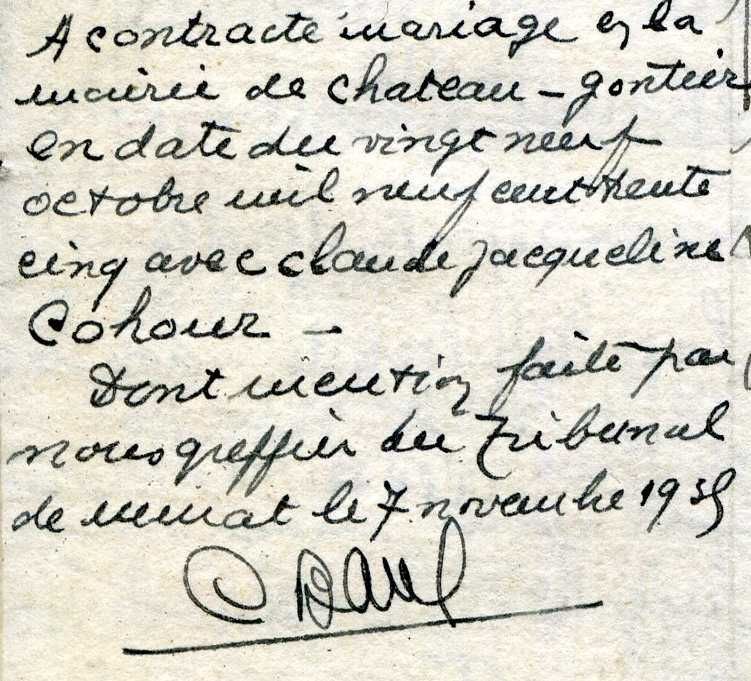 A contracté mariage en la
mairie de Chateau-gontier
en date du vingt neuf
octobre mil neuf cent trente
cinq avec Claude Jacqueline
Cohour —
Dont mention faite par
nous greffier du Tribunal
de murat le 7 novembre 1935